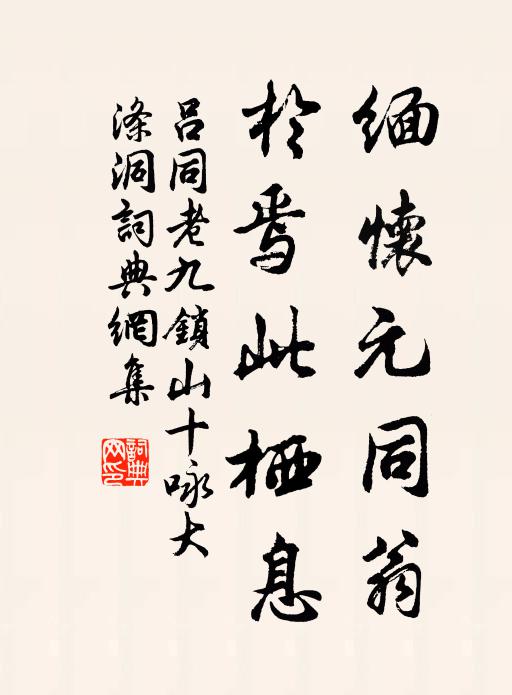 緬懷元同翁
於焉此栖息
吕同老九鎖山十咏大
滌洞詞典網集
詞典網印